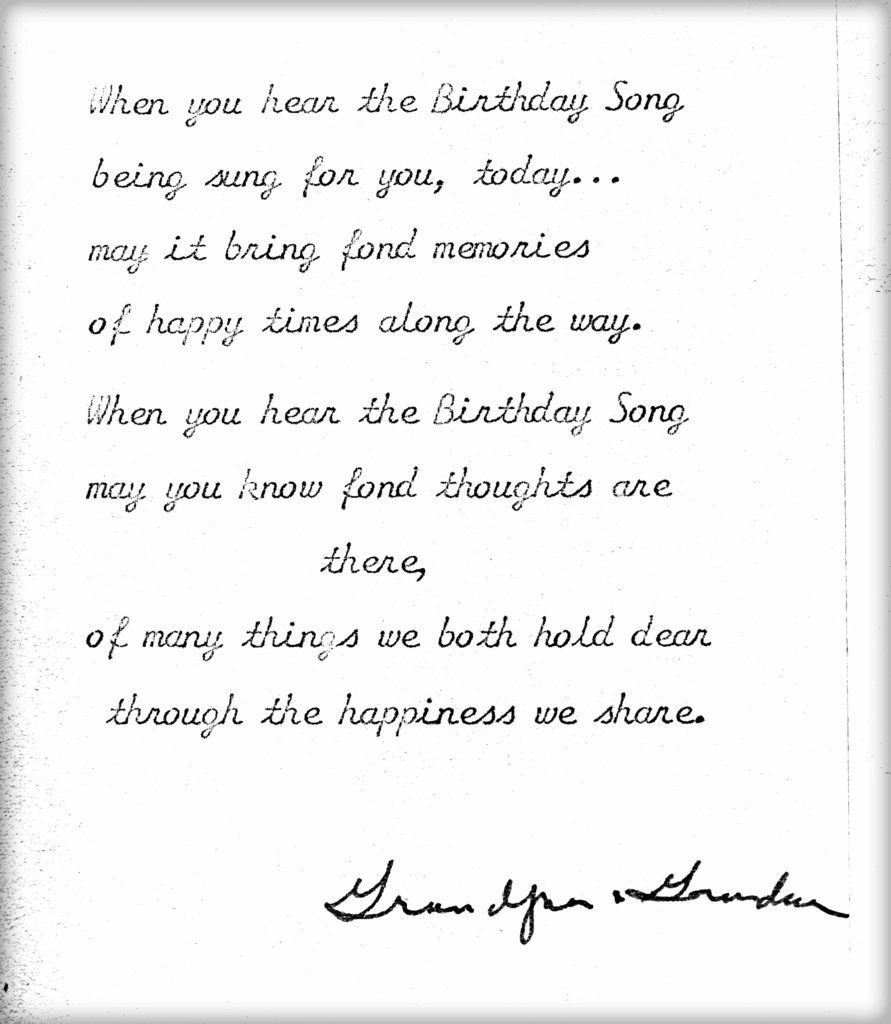 When you hear the Birthday Song
being sung for you, today...
may it bring fond memories
of happy times along the way.
When you hear the Birthday Song
may you know fond thoughts are
there,
of many things we both hold dear
through the happiness we share.
Grandpa &